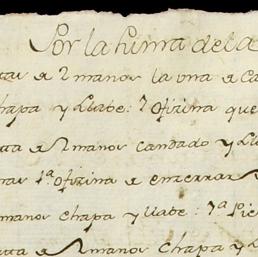 Por la Puerta de la
ttas de 2 manos la una de Ca
chapa y Llabe: 7 ofizina que
tta de 2 manos candado y Ll
nar 1ª ofizina de encerrar
manos chapa y llabe: 7ª Pie
tta de 2 manos chapa y L